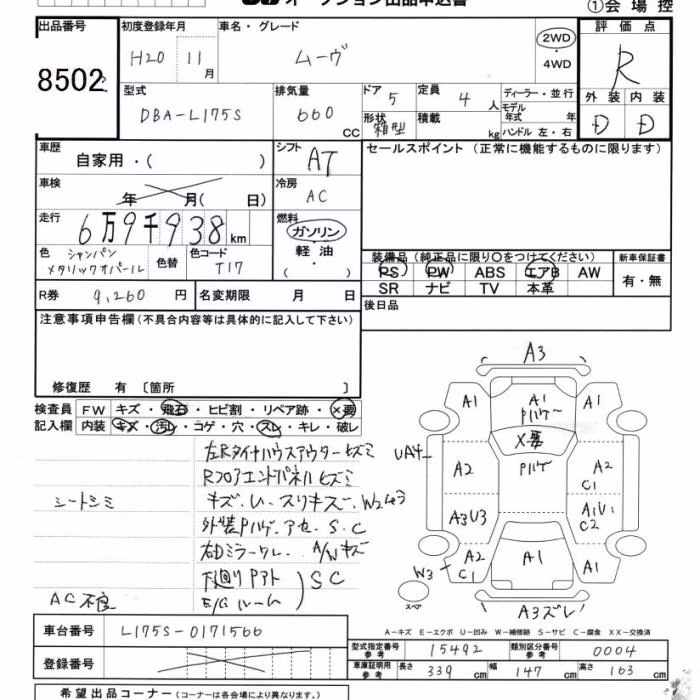 ①会場控
出品番号 8502
初度登録年月 H20 11月
車名・グレード ムーヴ
2WD
・4WD
評価点 R
外装 内装
D D
型式 DBA-L175S
排気量 660 CC
ドア 5
形状 箱型
定員 4 人
積載 kg
ディーラー・並行
モデル年式 年
ハンドル 左・右
車歴 自家用・( )
シフト AT
セールスポイント (正常に機能するものに限ります)
車検 年 月( 日)
冷房 AC
走行 6万9千938km
燃料 ガソリン
軽油
・( )
色 シャンパンメタリックオパール
色替
色コード T17
装備品(純正品に限り○をつけてください)
新車保証書
PS PW ABS エアB AW
SR ナビ TV 本革
有・無
R券 9,260 円
名変期限 月 日
後日品
注意事項申告欄(不具合内容等は具体的に記入して下さい)
修復歴 有〔箇所 〕
検査員記入欄
FW キズ・飛石・ヒビ割・リペア跡・×要
内装 キズ・汚レ・コゲ・穴・スレ・キレ・破レ
左Rタイヤハウスアウターヒズミ
Rフロアエンドパネルヒズミ
シートシミ
キズ.U.スリキズ.W2 43
外装Pハゲ.アセ.S.C
右Dミラーワレ. A/Wキズ
下廻りPアト
E/Gルーム
SC
AC不良
A3
A1
A1
Pハゲー
A1
X要
UA4
Pハゲ
A2
A2
C1
A3U3
A1U1
C2
W3
A2
C1
A1
A1
スペア
A3ズレ
車台番号 L175S-0171566
登録番号
A-キズ E-エクボ U-凹み W-補修跡 S-サビ C-腐食 XX-交換済
型式指定番号 参考 15492
類別区分番号 参考 0004
車庫証明用 参考 長さ 339 cm 幅 147 cm 高さ 163 cm
希望出品コーナー(コーナーは各会場により異なります。)